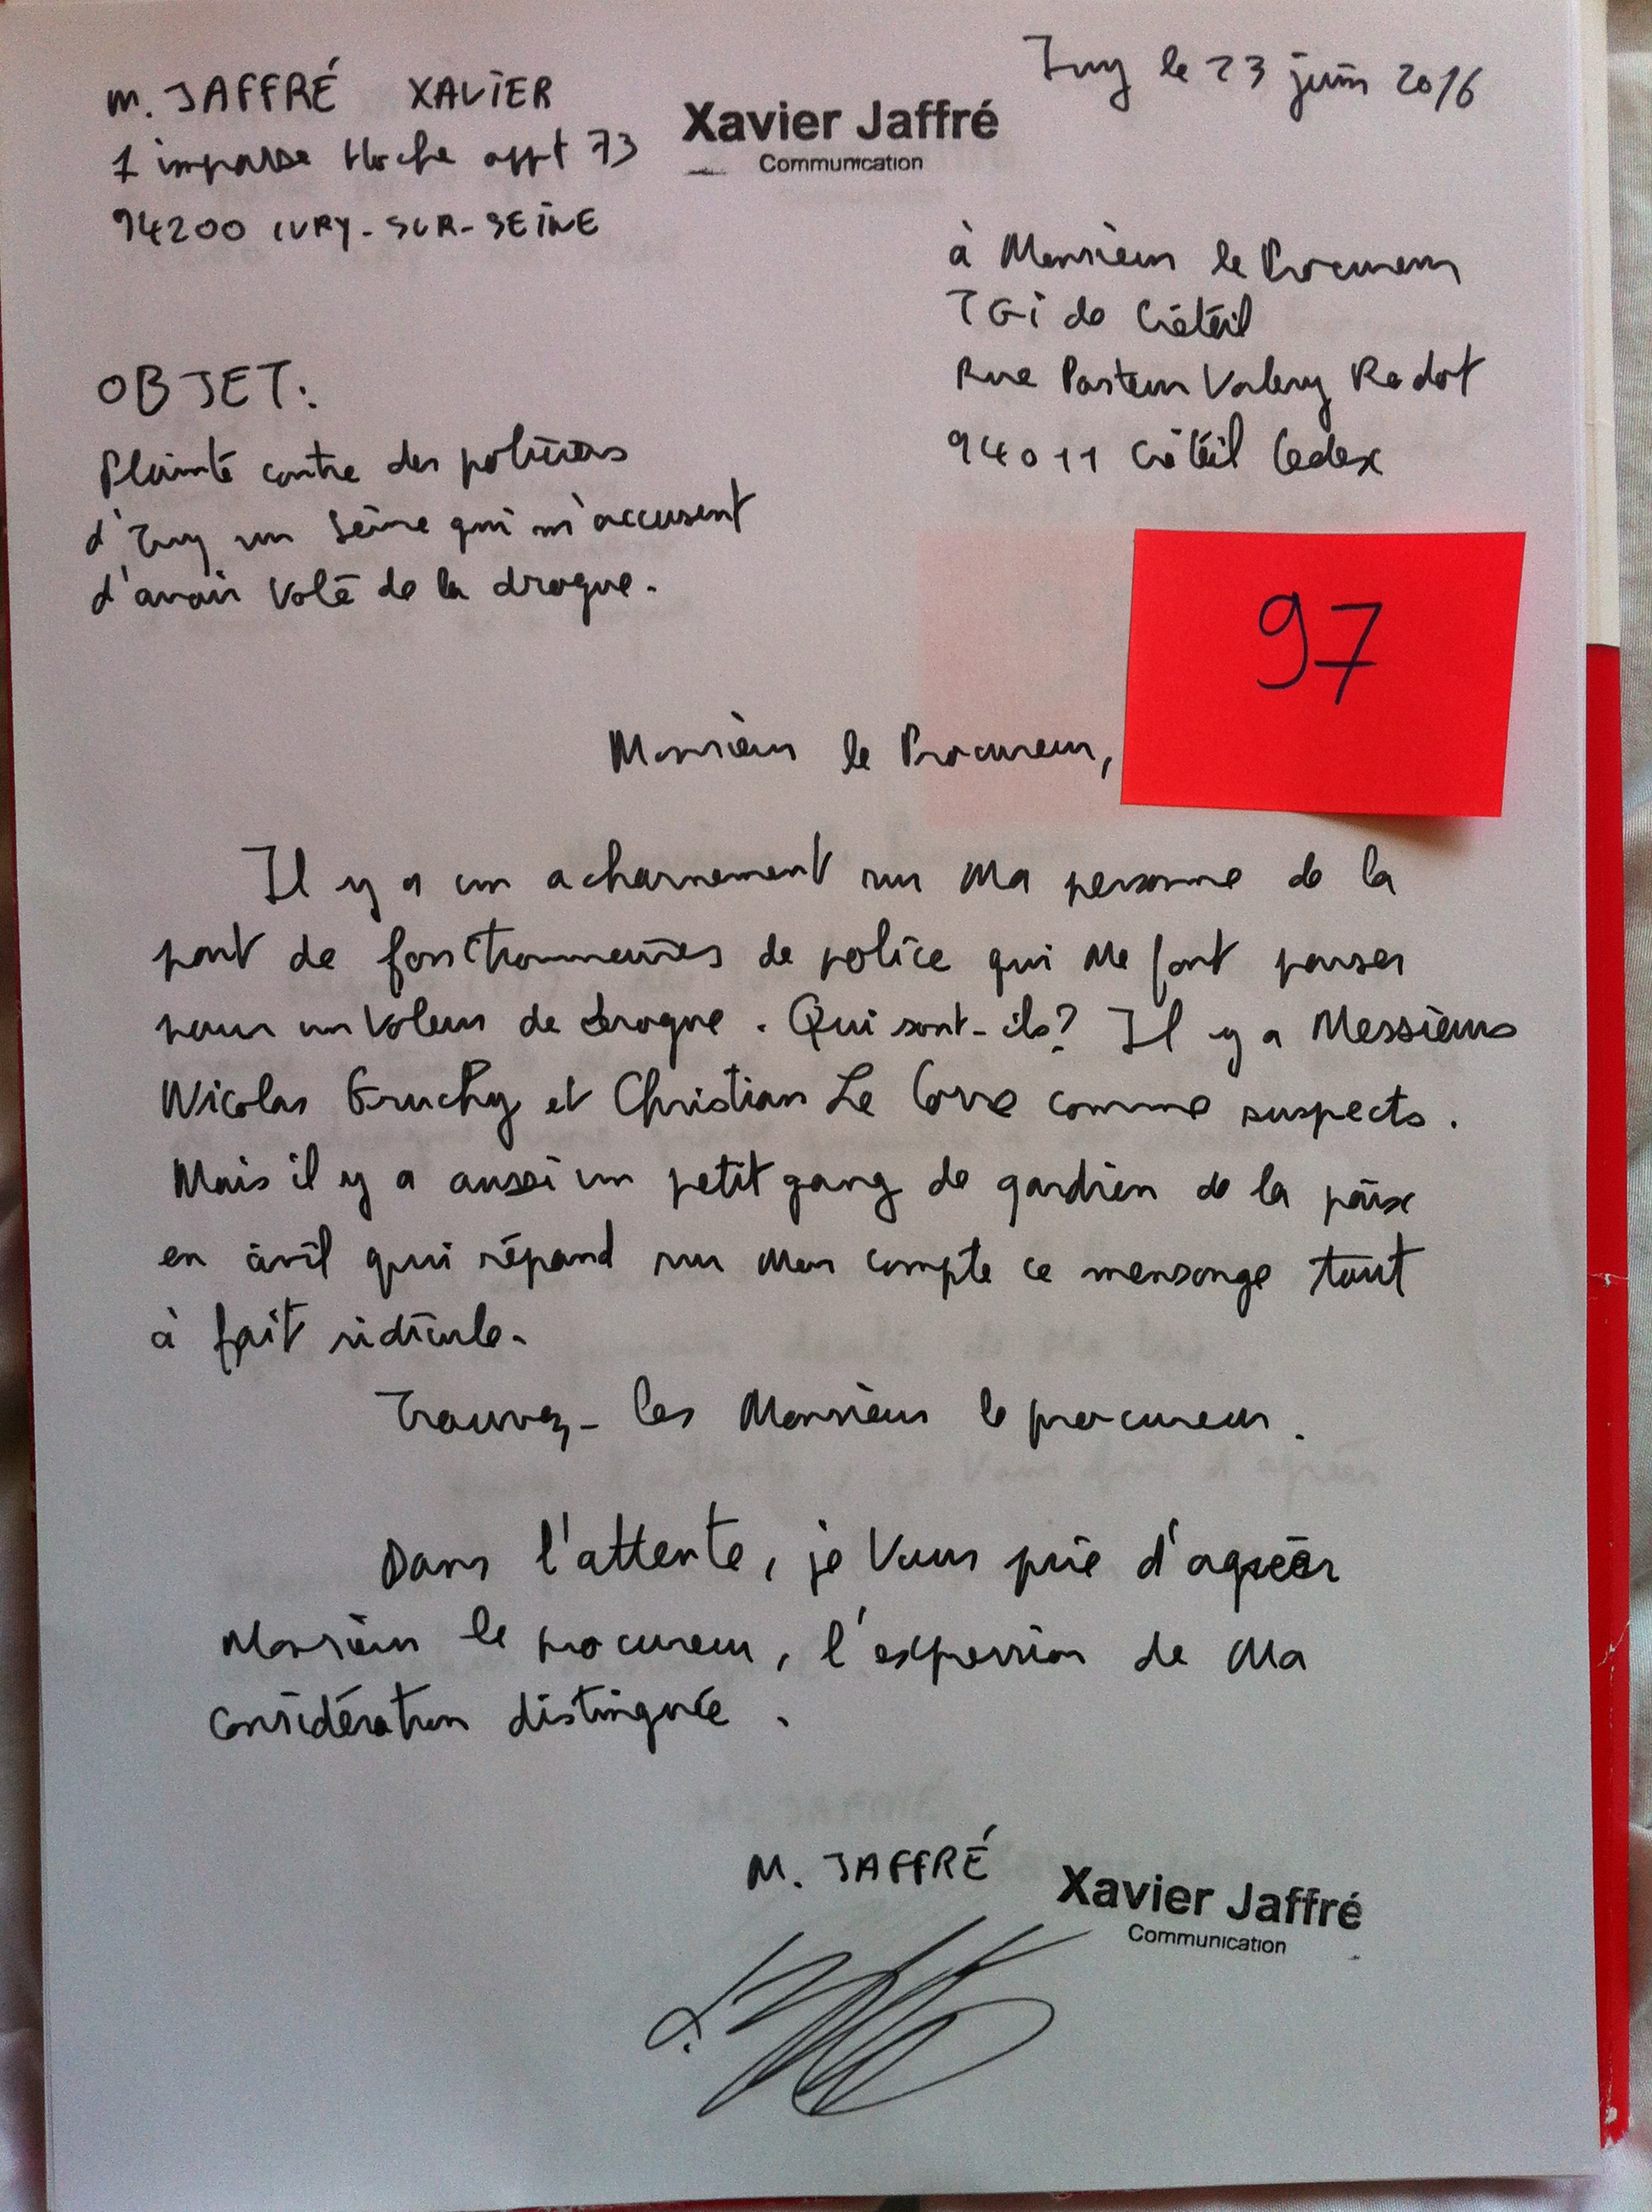 Ivry le 23 juin 2016
M. JAFFRÉ XAVIER
1 impasse Hoche appt 73
94200 IVRY-SUR-SEINE
Xavier Jaffré
Communication
à Monsieur le Procureur
TGI de Créteil
Rue Pasteur Valery Radot
94011 Créteil Cedex
OBJET:
Plainte contre des policiers
d'Ivry sur Seine qui m'accusent
d'avoir volé de la drogue.
97
Monsieur le Procureur,
Il y a un acharnement sur ma personne de la
part de fonctionnaires de police qui me font passer
pour un voleur de drogue. Qui sont-ils? Il y a Messieurs
Nicolas Gruchy et Christian Le Corre comme suspects.
Mais il y a aussi un petit gang de gardien de la paix
en civil qui répand sur mon compte ce mensonge tout
à fait ridicule.
Trouvez-les Monsieur le procureur.
Dans l'attente, je vous prie d'agréer
Monsieur le procureur, l'expression de ma
considération distinguée.
M. JAFFRÉ
Xavier Jaffré
Communication